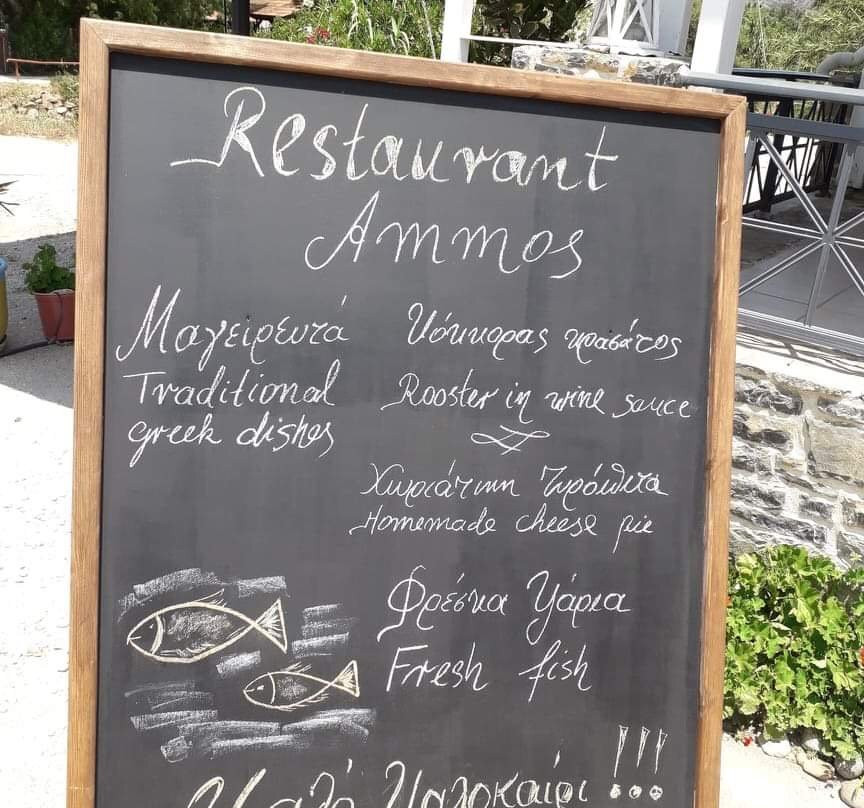 Restaurant
Ammos
Μαγειρευτά
Traditional
greek dishes
Κόκκορας κρασάτος
Rooster in wine sauce
Χωριάτικη Τυρόπιτα
Homemade cheese pie
Φρέσκα Ψάρια
Fresh fish
Καλό Καλοκαίρι !!!